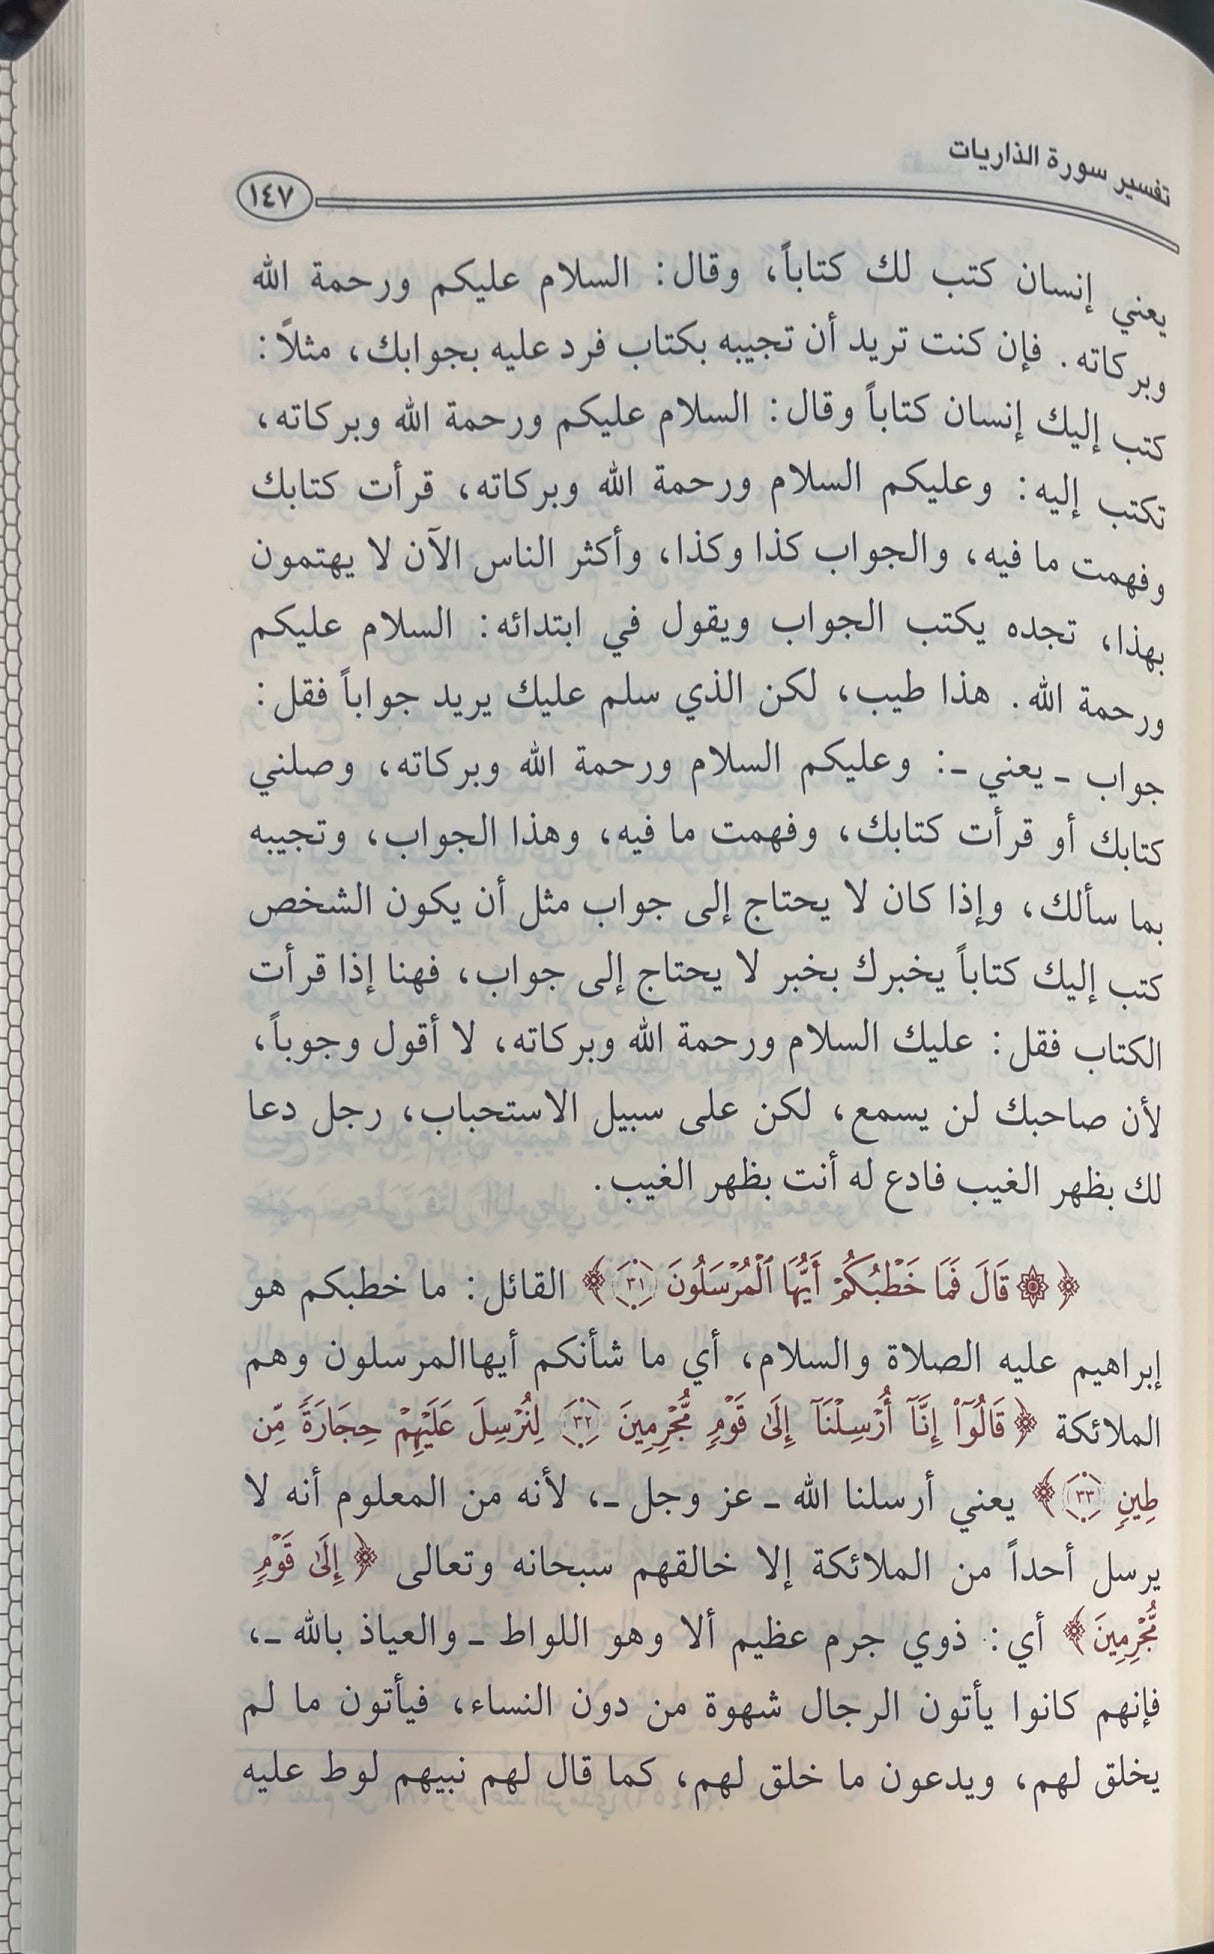 تفسير سورة الذاريات
١٤٧
يعني إنسان كتب لك كتاباً، وقال: السلام عليكم ورحمة الله
وبركاته. فإن كنت تريد أن تجيبه بكتاب فرد عليه بجوابك، مثلاً:
كتب إليك إنسان كتاباً وقال: السلام عليكم ورحمة الله وبركاته،
تكتب إليه: وعليكم السلام ورحمة الله وبركاته، قرأت كتابك
وفهمت ما فيه، والجواب كذا وكذا، وأكثر الناس الآن لا يهتمون
بهذا، تجده يكتب الجواب ويقول في ابتدائه: السلام عليكم
ورحمة الله. هذا طيب، لكن الذي سلم عليك يريد جواباً فقل:
جواب ـ يعني ـ: وعليكم السلام ورحمة الله وبركاته، وصلني
كتابك أو قرأت كتابك، وفهمت ما فيه، وهذا الجواب، وتجيبه
بما سألك، وإذا كان لا يحتاج إلى جواب مثل أن يكون الشخص
كتب إليك كتاباً يخبرك بخبر لا يحتاج إلى جواب، فهنا إذا قرأت
الكتاب فقل: عليك السلام ورحمة الله وبركاته، لا أقول وجوباً،
لأن صاحبك لن يسمع، لكن على سبيل الاستحباب، رجل دعا
لك بظهر الغيب فادع له أنت بظهر الغيب.
﴿۞ قَالَ فَمَا خَطْبُكُمْ أَيُّهَا ٱلْمُرْسَلُونَ ٣١﴾ القائل: ما خطبكم هو
إبراهيم عليه الصلاة والسلام، أي ما شأنكم أيهاالمرسلون وهم
الملائكة ﴿قَالُوٓا۟ إِنَّآ أُرْسِلْنَآ إِلَىٰ قَوْمٍ مُّجْرِمِينَ ٣٢ لِنُرْسِلَ عَلَيْهِمْ حِجَارَةً مِّن
طِينٍ ٣٣﴾ يعني أرسلنا الله ـ عز وجل ـ، لأنه من المعلوم أنه لا
يرسل أحداً من الملائكة إلا خالقهم سبحانه وتعالى ﴿إِلَىٰ قَوْمٍ
مُّجْرِمِينَ﴾ أي: ذوي جرم عظيم ألا وهو اللواط ـ والعياذ بالله ـ،
فإنهم كانوا يأتون الرجال شهوة من دون النساء، فيأتون ما لم
يخلق لهم، ويدعون ما خلق لهم، كما قال لهم نبيهم لوط عليه